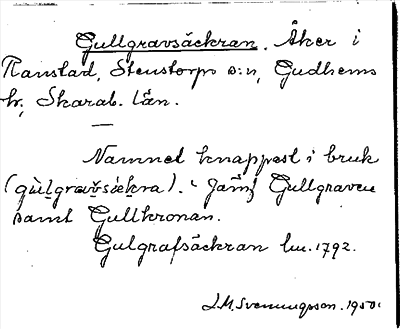 Gullgravsäckran. Åker i
Ranstad, Stenstorps s:n, Gudhems
hr, Skarab. län.
—
Namnet knappast i bruk
(gùl̥gravs̀ák̥ra). Jämf Gullgraven
samt Gullkronan.
Gulgrafsäckran lm. 1792.
J.M. Svenungsson. 1950.